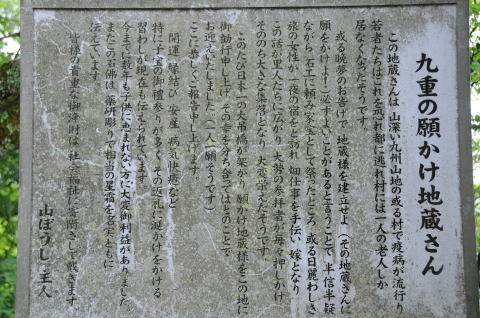 九重の願かけ地蔵さん
この地蔵さんは、山深い九州山地の或る村で疫病が流行り
若者たちはこれを恐れ都に逃れ村には一人の老人しか
居なくなったそうです。
或る晩夢のお告げで地蔵様を建立せよ(その地蔵さんに
願をかけよ!)必ずよいことがあると言うことで、半信半疑
ながら、石工に頼み家宝として祭ったところ、或る日麗わしき
旅の女性が一夜の宿をと訪れ、畑仕事を手伝い、嫁となり
この話が里人たちに広がり、大勢の参拝者が毎々押しかけ
そののち大きな集落となり、大変栄えたそうです。
このたび日本一の大吊橋が架かり、願かけ地蔵様をこの地に
御勧行申し上げ、その幸を分ち合ってはとのことで
お迎えいたしました(一人一願そうです)
ここに恭しくご報告申し上げます。
開運、縁結び、安産、病気快癒など
特に子宝の御礼参りが多く、その返礼に涎かけをかける
習わしが現在も伝えられています。
今までに数年も子供に恵まれない方に大変御利益がありました。
またこの石佛は、薬研彫りで相当の星霜を名実ともに
伝えています。
皆様の貴重な御浄財は、社会福祉に寄附して戴きます
山ぼうし 主人